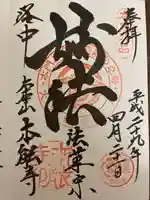 奉拝
平成二十九年
四月二十日
妙法
法華宗
洛中
大本山
本能寺